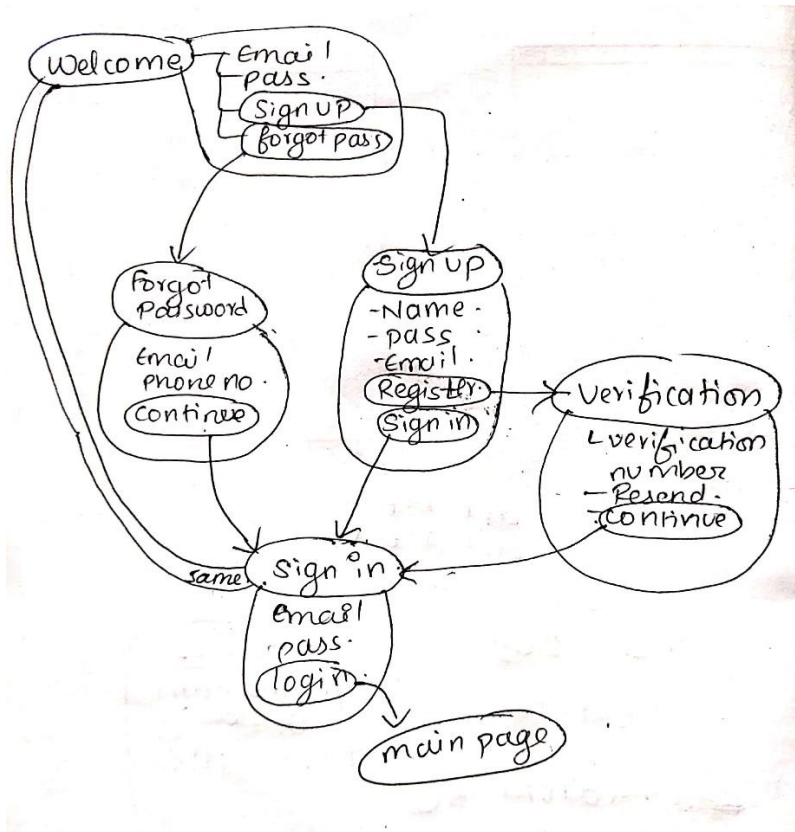 Welcome
Email
pass.
Sign up
forgot pass
Forgot
Password
Email
phone no.
Continue
Sign up
-Name.
-pass.
-Email.
Register.
Sign in
Verification
verification
number
- Resend.
- Continue
same
Sign in
email
.pass.
login.
main page